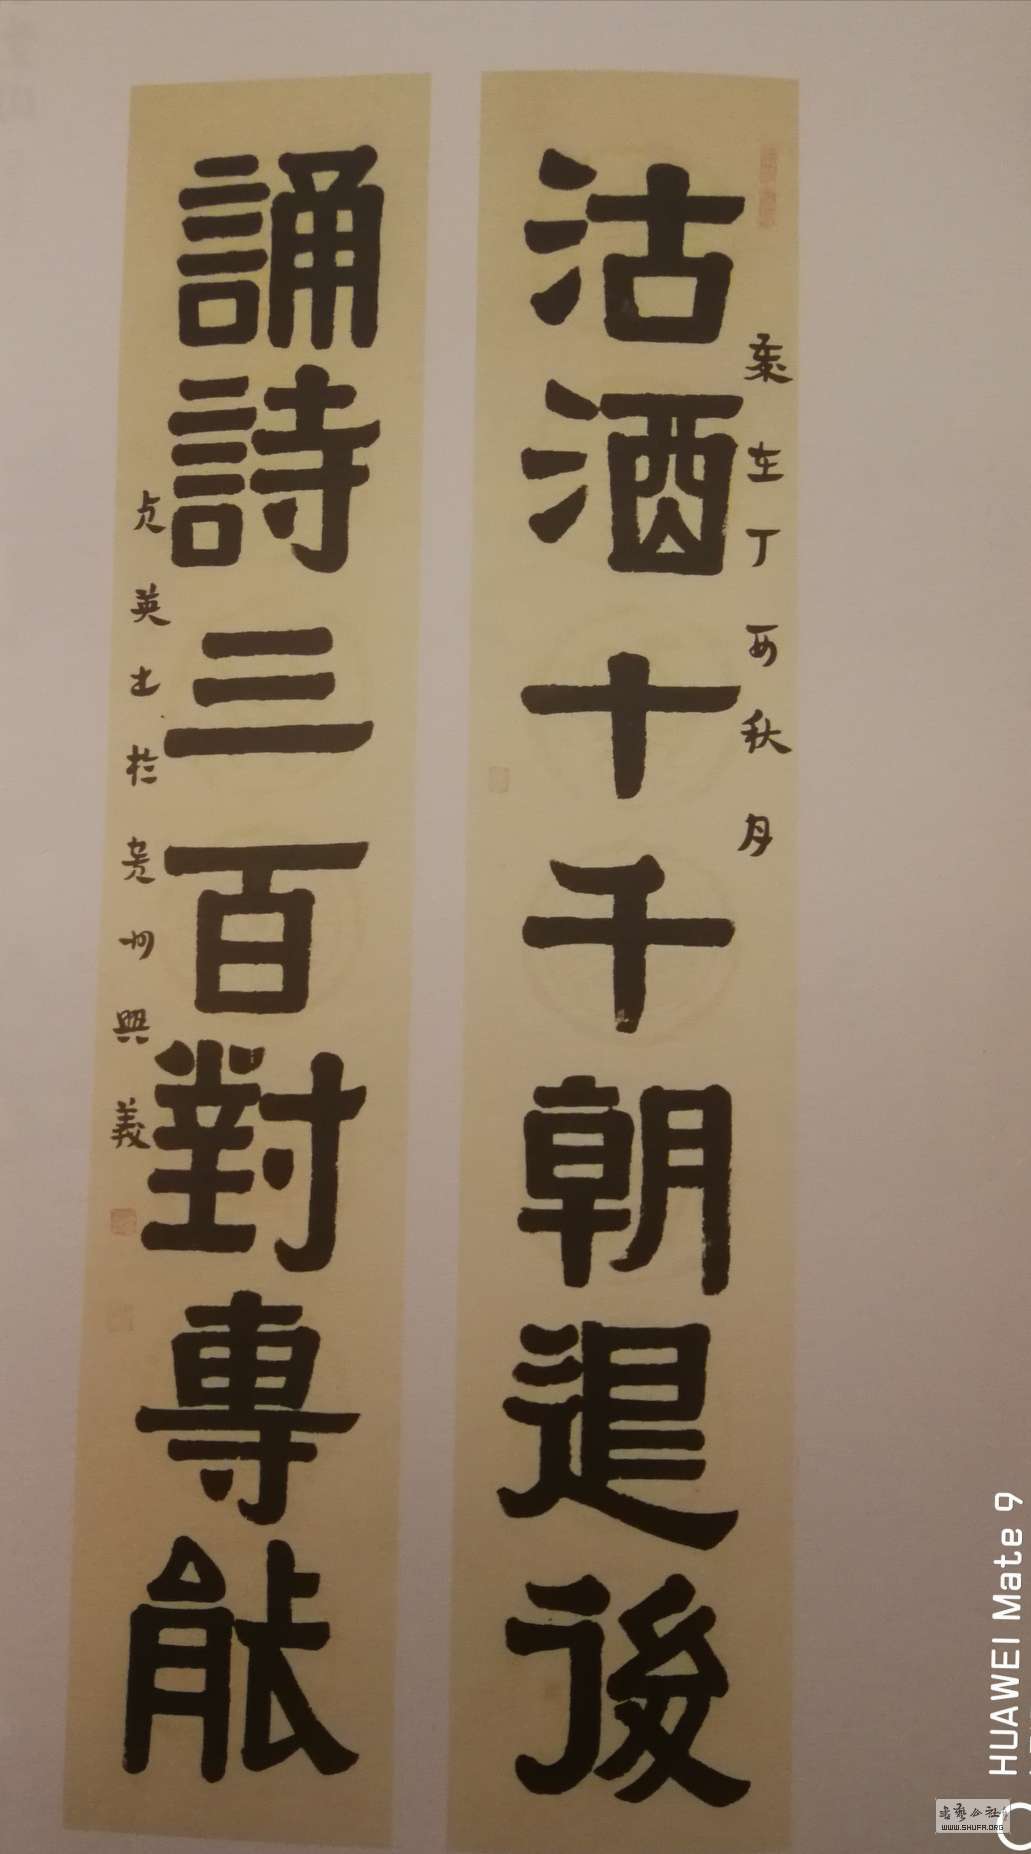 沽酒十千朝退後
歲在丁酉秋月
誦詩三百對專能
貞英書於貴州興義
HUAWEI Mate 9
WWW.SHUFA.ORG